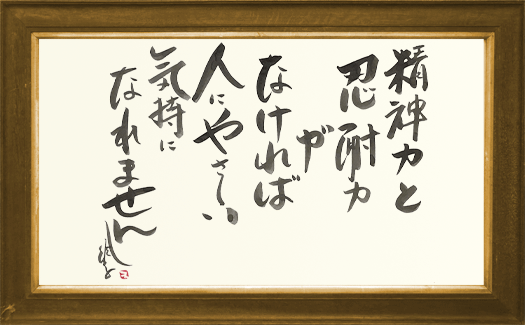 精神力と
忍耐力
が
なければ
人にやさしい
気持に
なれません